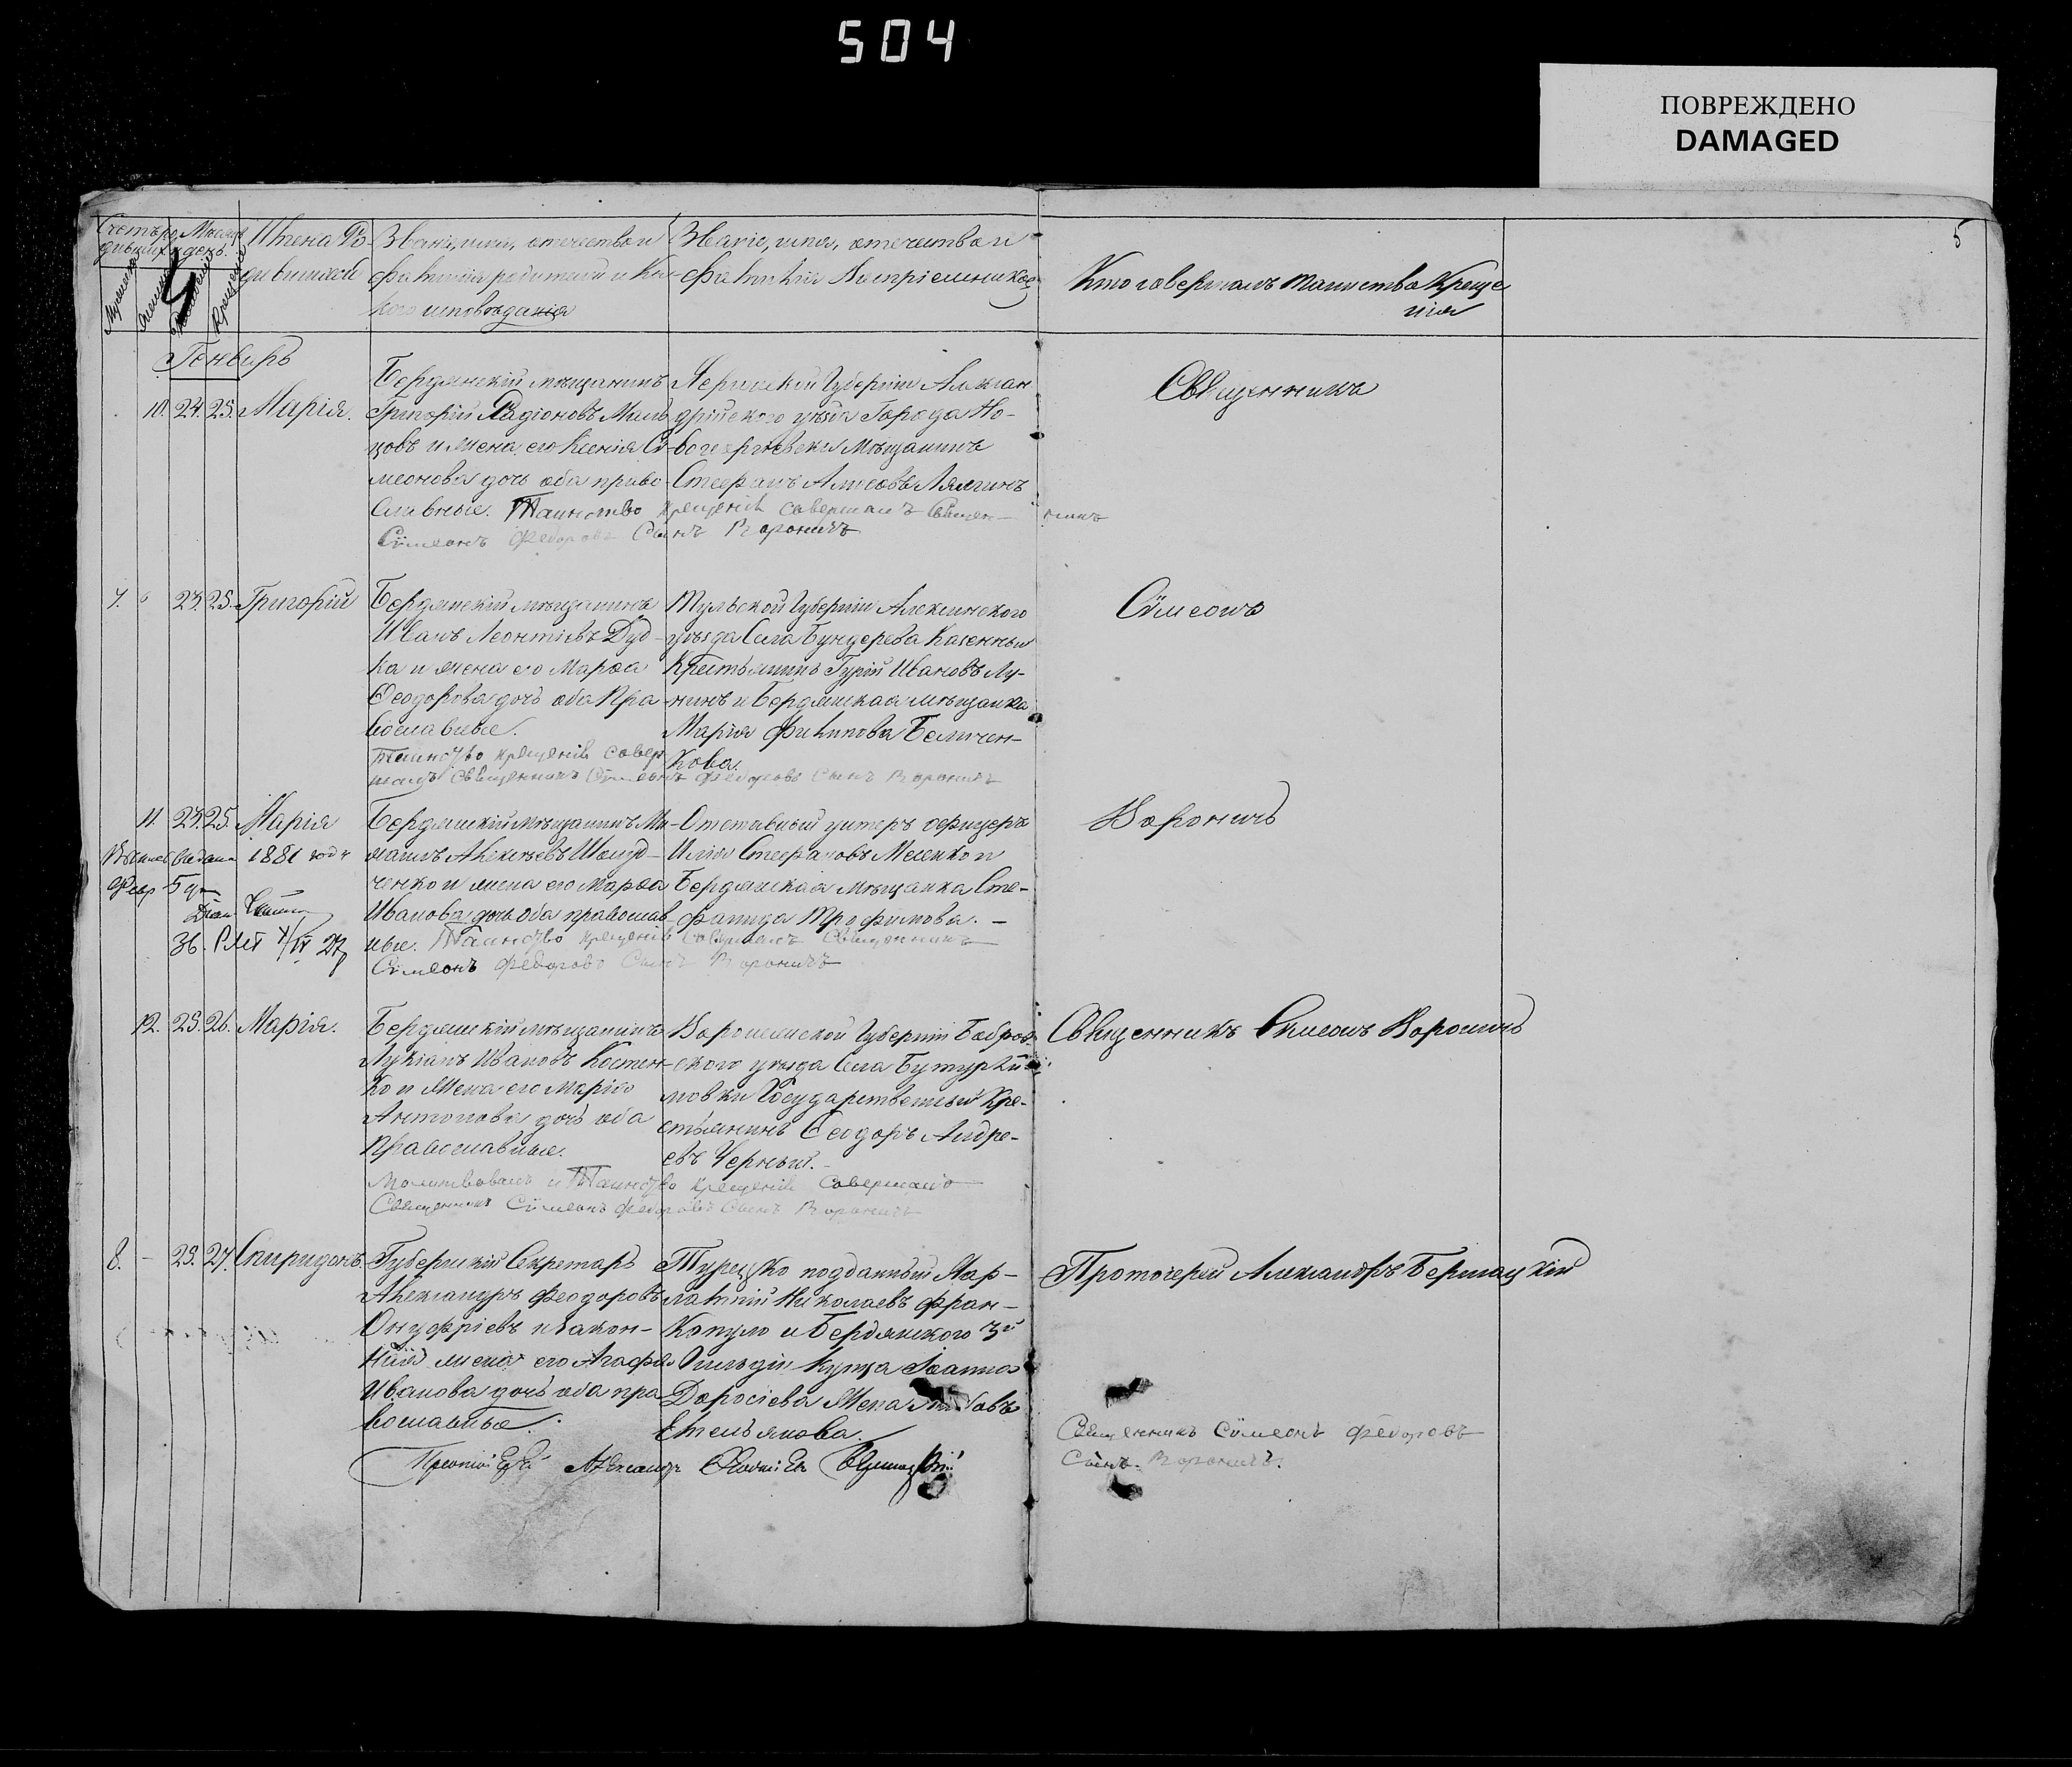 504
ПОВРЕЖДЕНО
DAMAGED
5
Счетъ ро- Мѣсяцъ
дившихся и день.
Имена Ро-
дившихся
Званіе, имя, отечество и
фамилія родителей и Ка-
кого исповѣданія
Званіе, имя, отечество и
Фамилія Воспріемниковъ
Кто совершалъ таинство Креще
нія
Генварь
10. 24. 25. Марія.
Бердянскій мѣщанинъ
Григорій Радіоновъ
и жена его Ксенія Си-
меонова дочь оба право
славные. Таинство крещенія совершалъ Священ- никъ
Сѵмеонъ Федоровъ Сынъ Вороничъ
Губерніи Алексан
дрійского уѣзда Города Но-
вогеоргіевска Мѣщанинъ
Стефанъ
Священникъ
7. 23. 25. Григорій
Бердянскій мѣщанинъ
Иванъ Леонтіевъ Дуд-
ка и жена его Марѳа
Ѳеодорова дочь оба Пра
вославные.
Таинство крещенія совер
шалъ Священникъ Сѵмеонъ Федоровъ Сынъ Вороничъ
Тульской Губерніи Алексинского
уѣзда Села Бундерева Казенный
Крестьянинъ Гурій Ивановъ Лу-
нинъ и Бердянская мѣщанка
Марія Филипова Беличен-
кова.
Сѵмеонъ
11. 23. 25. Марія
выдана 1881 года
Февр 5 дня
36. 27
Бердянскій мѣщанинъ
Алексѣевъ
ченко и жена его Марѳа
Иванова дочь оба православ
ные. Таинство крещенія совершалъ Священникъ
Сѵмеонъ Федоровъ Сынъ Вороничъ
Отставный унтеръ офицеръ
Илія Стефановъ и
Бердянская Мѣщанка Сте-
фанида Трофимова. –
Вороничъ
12. 25. 26. Марія.
Бердянскій мѣщанинъ
Лукіанъ Ивановъ Костен-
ко и Жена его Марія
Антонова дочь оба
Православные.
Молитвовалъ и Таинство крещенія совершалъ
Священникъ Сѵмеонъ Федоровъ Сынъ Вороничъ
Воронежской Губерніи Бобров-
ского уѣзда Села Бутурли-
новки Государственный Кре-
стьянинъ Ѳеодоръ Андре-
евъ Черный. –
Священникъ Сѵмеонъ Вороничъ
8. – 25. 27. Спиридонъ.
Губернскій Секретарь
Александръ Феодоровъ
Онуфріевъ и закон-
ная жена его Агафія
Иванова дочь оба пра
вославные.
Турецко подданный Хар-
лампій Николаевъ Фран-
копуло и Бердянского 3й
Гильдіи Купца Іоанна
Доросіева Жена
Емельянова.
Протоіерей Александръ
Священникъ Сѵмеонъ Федоровъ
Сынъ Вороничъ.
Протоіерей Александръ